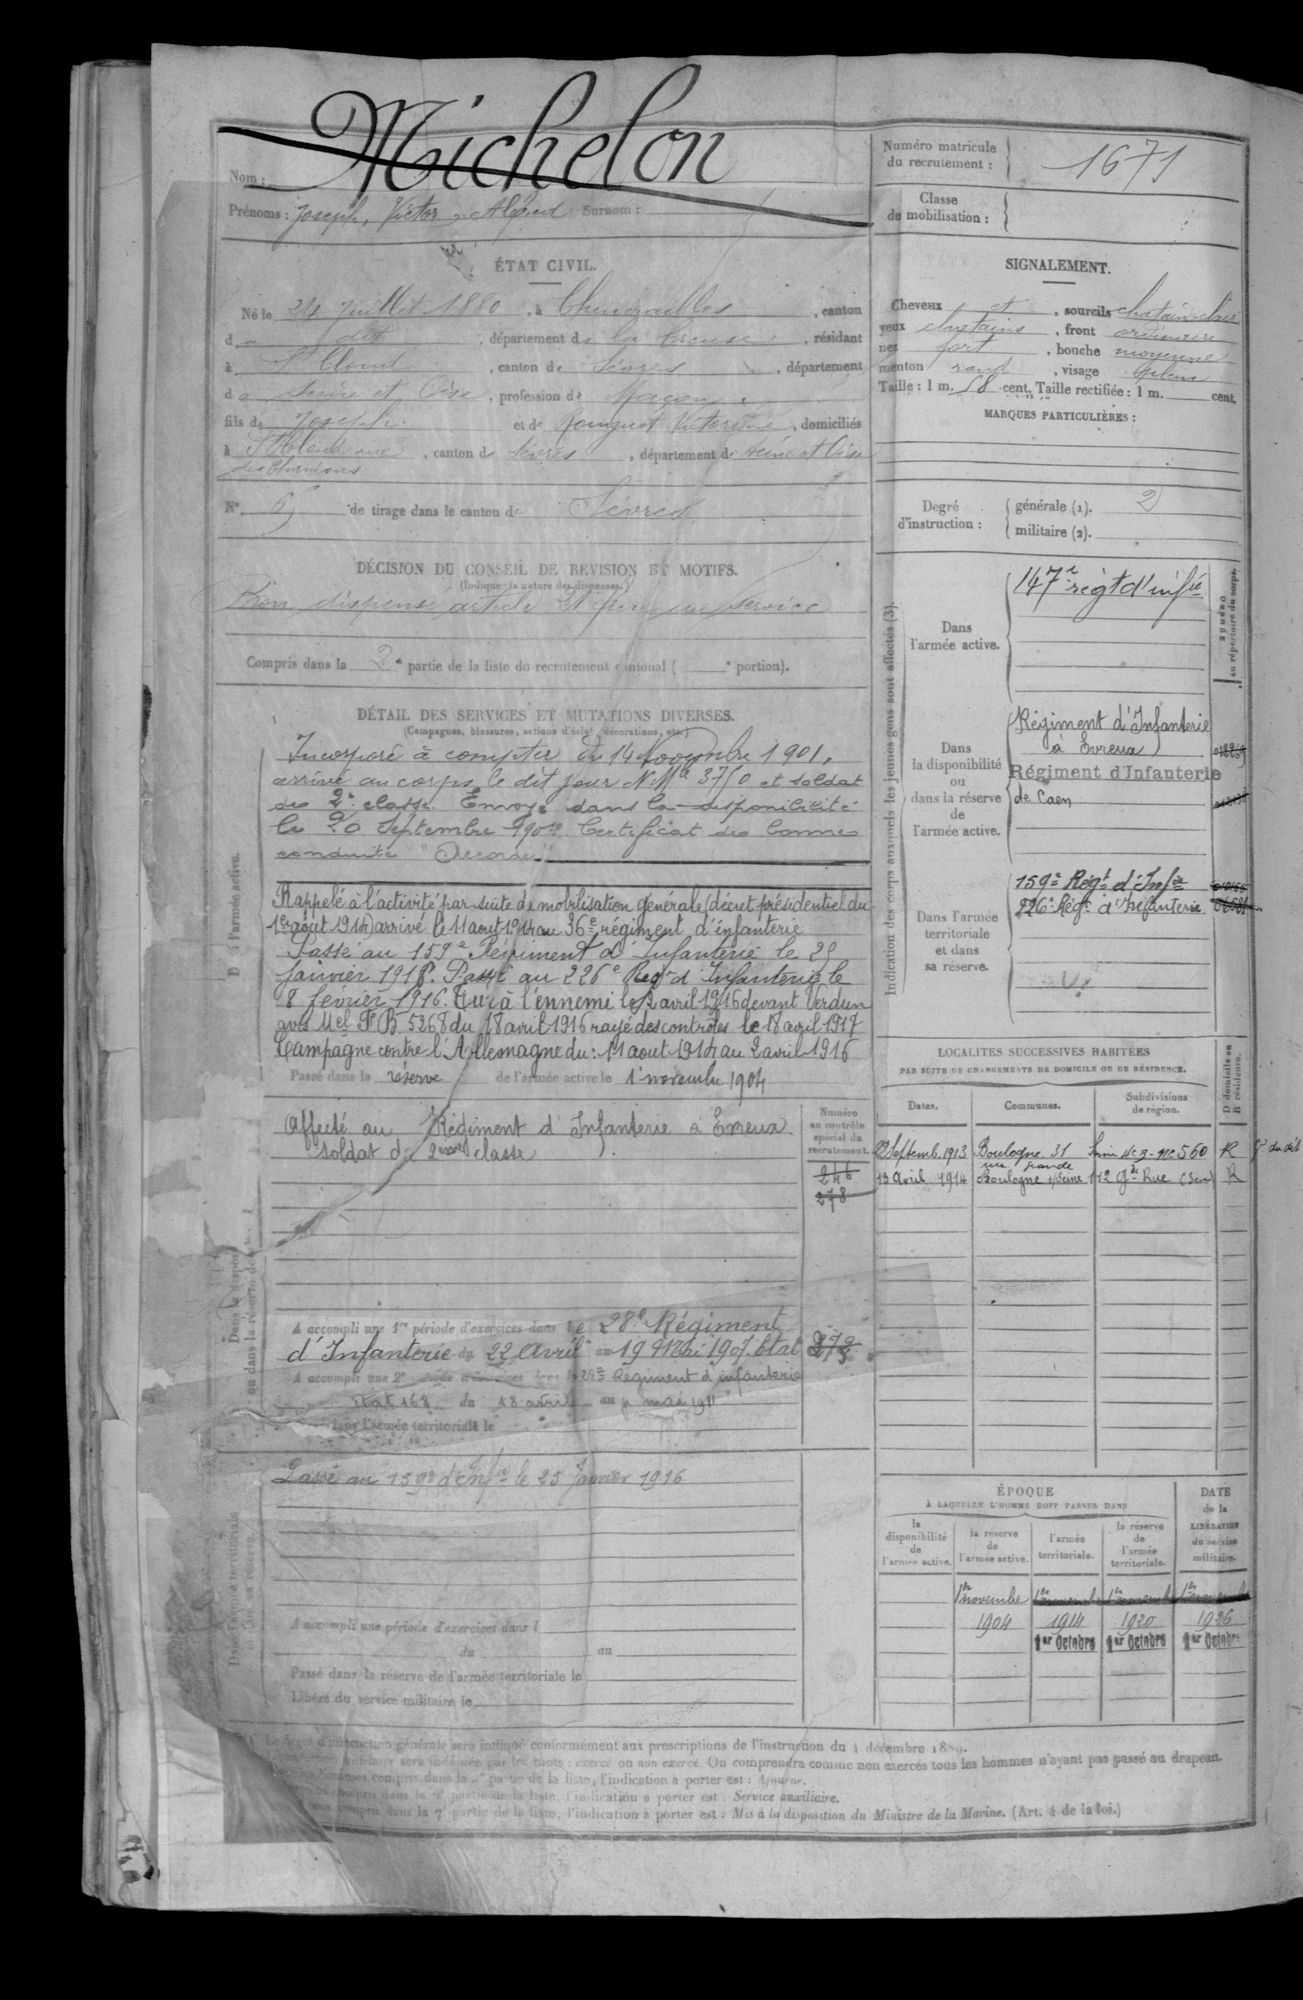 Michelon
Nom :
Prénoms : Joseph, Victor, Alfred Surnom :
Numéro matricule
du recrutement : 1671
Classe
de mobilisation :
ÉTAT CIVIL.
Né le 24 juillet 1880, à Chénérailles, canton
d a dit, département de la Creuse, résidant
à St Cloud, canton de Sèvres, département
d e Seine et Oise, profession de Maçon,
fils de Joseph et de Victorine, domiciliés
à St Cloud rue, canton de Sèvres, département de Seine et Oise
des
N° 65 de tirage dans le canton de Sèvres
SIGNALEMENT.
Cheveux et, sourcils chatain-clair
yeux chatains, front ordinaire
nez fort, bouche moyenne
menton rond, visage plein
Taille : 1 m. 58 cent. Taille rectifiée : 1 m. cent.
MARQUES PARTICULIÈRES :
Degré
d'instruction :
générale (1). 2
militaire (2).
DÉCISION DU CONSEIL DE REVISION ET MOTIFS.
(Indiquer la nature des dispenses.)
Bon dispensé article 21 frère au service
Compris dans la 2e partie de la liste du recrutement cantonal ( e portion).
DÉTAIL DES SERVICES ET MUTATIONS DIVERSES.
(Campagnes, blessures, actions d'éclat, décorations, etc.)
Incorporé à compter du 14 Novembre 1901,
arrivé au corps le dit jour N° Mle 3750 et soldat
de 2e classe. Envoyé dans la disponibilité
le 20 Septembre 1902. Certificat de bonne
conduite "Accordé"
Rappelé à l'activité par suite de mobilisation générale (décret présidentiel du
1er août 1914) arrivé le 11 aout 1914 au 36e régiment d'infanterie
Passé au 159e Régiment d'Infanterie le 25
Janvier 1916. Passé au 226e Regt d'Infanterie le
8 février 1916. Tué à l'ennemi le 2 avril 1916 devant Verdun
avis Mel F B 5268 du 18 avril 1916 rayé des contrôles le 18 avril 1917
Campagne contre l'Allemagne du : 11 aout 1914 au 2 avril 1916
Passé dans la réserve de l'armée active le 1er novembre 1904
Affecté au Régiment d'Infanterie à Evreux
soldat de 2ème classe
Numéro
au contrôle
spécial du
recrutement.
246
278
A accompli une 1re période d'exercices dans le 28e Régiment
d'Infanterie du 22 Avril au 19 Mai 1907. Etat 273
A accompli une 2e période d'exercices dans le 28e Régiment d'infanterie
Etat 168 du 18 avril au mai 1911
dans l'armée territoriale le
Passé au 159e d'Infie le 25 Janvier 1916
A accompli une période d'exercices dans l
du au
Passé dans la réserve de l'armée territoriale le
Libéré du service militaire le
D s l'armée active.
Indication des corps auxquels les jeunes gens sont affectés (3).
NUMÉRO
au répertoire du corps.
Dans
l'armée active.
147e régt d'infie
Dans
la disponibilité
ou
dans la réserve
de
l'armée active.
Régiment d'Infanterie
à Evreux
Régiment d'Infanterie
de Caen
Dans l'armée
territoriale
et dans
sa réserve.
159e Regt d'Infie
226e Régt d'Infanterie
LOCALITÉS SUCCESSIVES HABITÉES
PAR SUITE DE CHANGEMENTS DE DOMICILE OU DE RÉSIDENCE.
Dates. Communes. Subdivisions
de région.
D domicile ou
R résidence.
Septemb. 1913 Boulogne. 31 560 R
rue grande
13 avril 1914 Boulogne s/Seine 112 gde Rue (Seine) R
ÉPOQUE
À LAQUELLE L'HOMME DOIT PASSER DANS
DATE
de la
LIBÉRATION
du service
militaire.
la
disponibilité
de
l'armée active.
la réserve
de
l'armée active.
l'armée
territoriale.
la réserve
de
l'armée
territoriale.
1er novembre 1er novembre 1er novembre 1er novembre
1904 1914 1920 1926
1er Octobre 1er Octobre 1er Octobre
Le degré d'instruction générale sera indiqué conformément aux prescriptions de l'instruction du 4 décembre 1889.
militaire sera indiquée par les mots : exercé ou non exercé. On comprendra comme non exercés tous les hommes n'ayant pas passé au drapeau.
hommes compris dans la partie de la liste, l'indication à porter est : Ajourné.
compris dans la partie de la liste, l'indication à porter est : Service auxiliaire.
compris dans la 7e partie de la liste, l'indication à porter est : Mis à la disposition du Ministre de la Marine. (Art. 4 de la loi.)